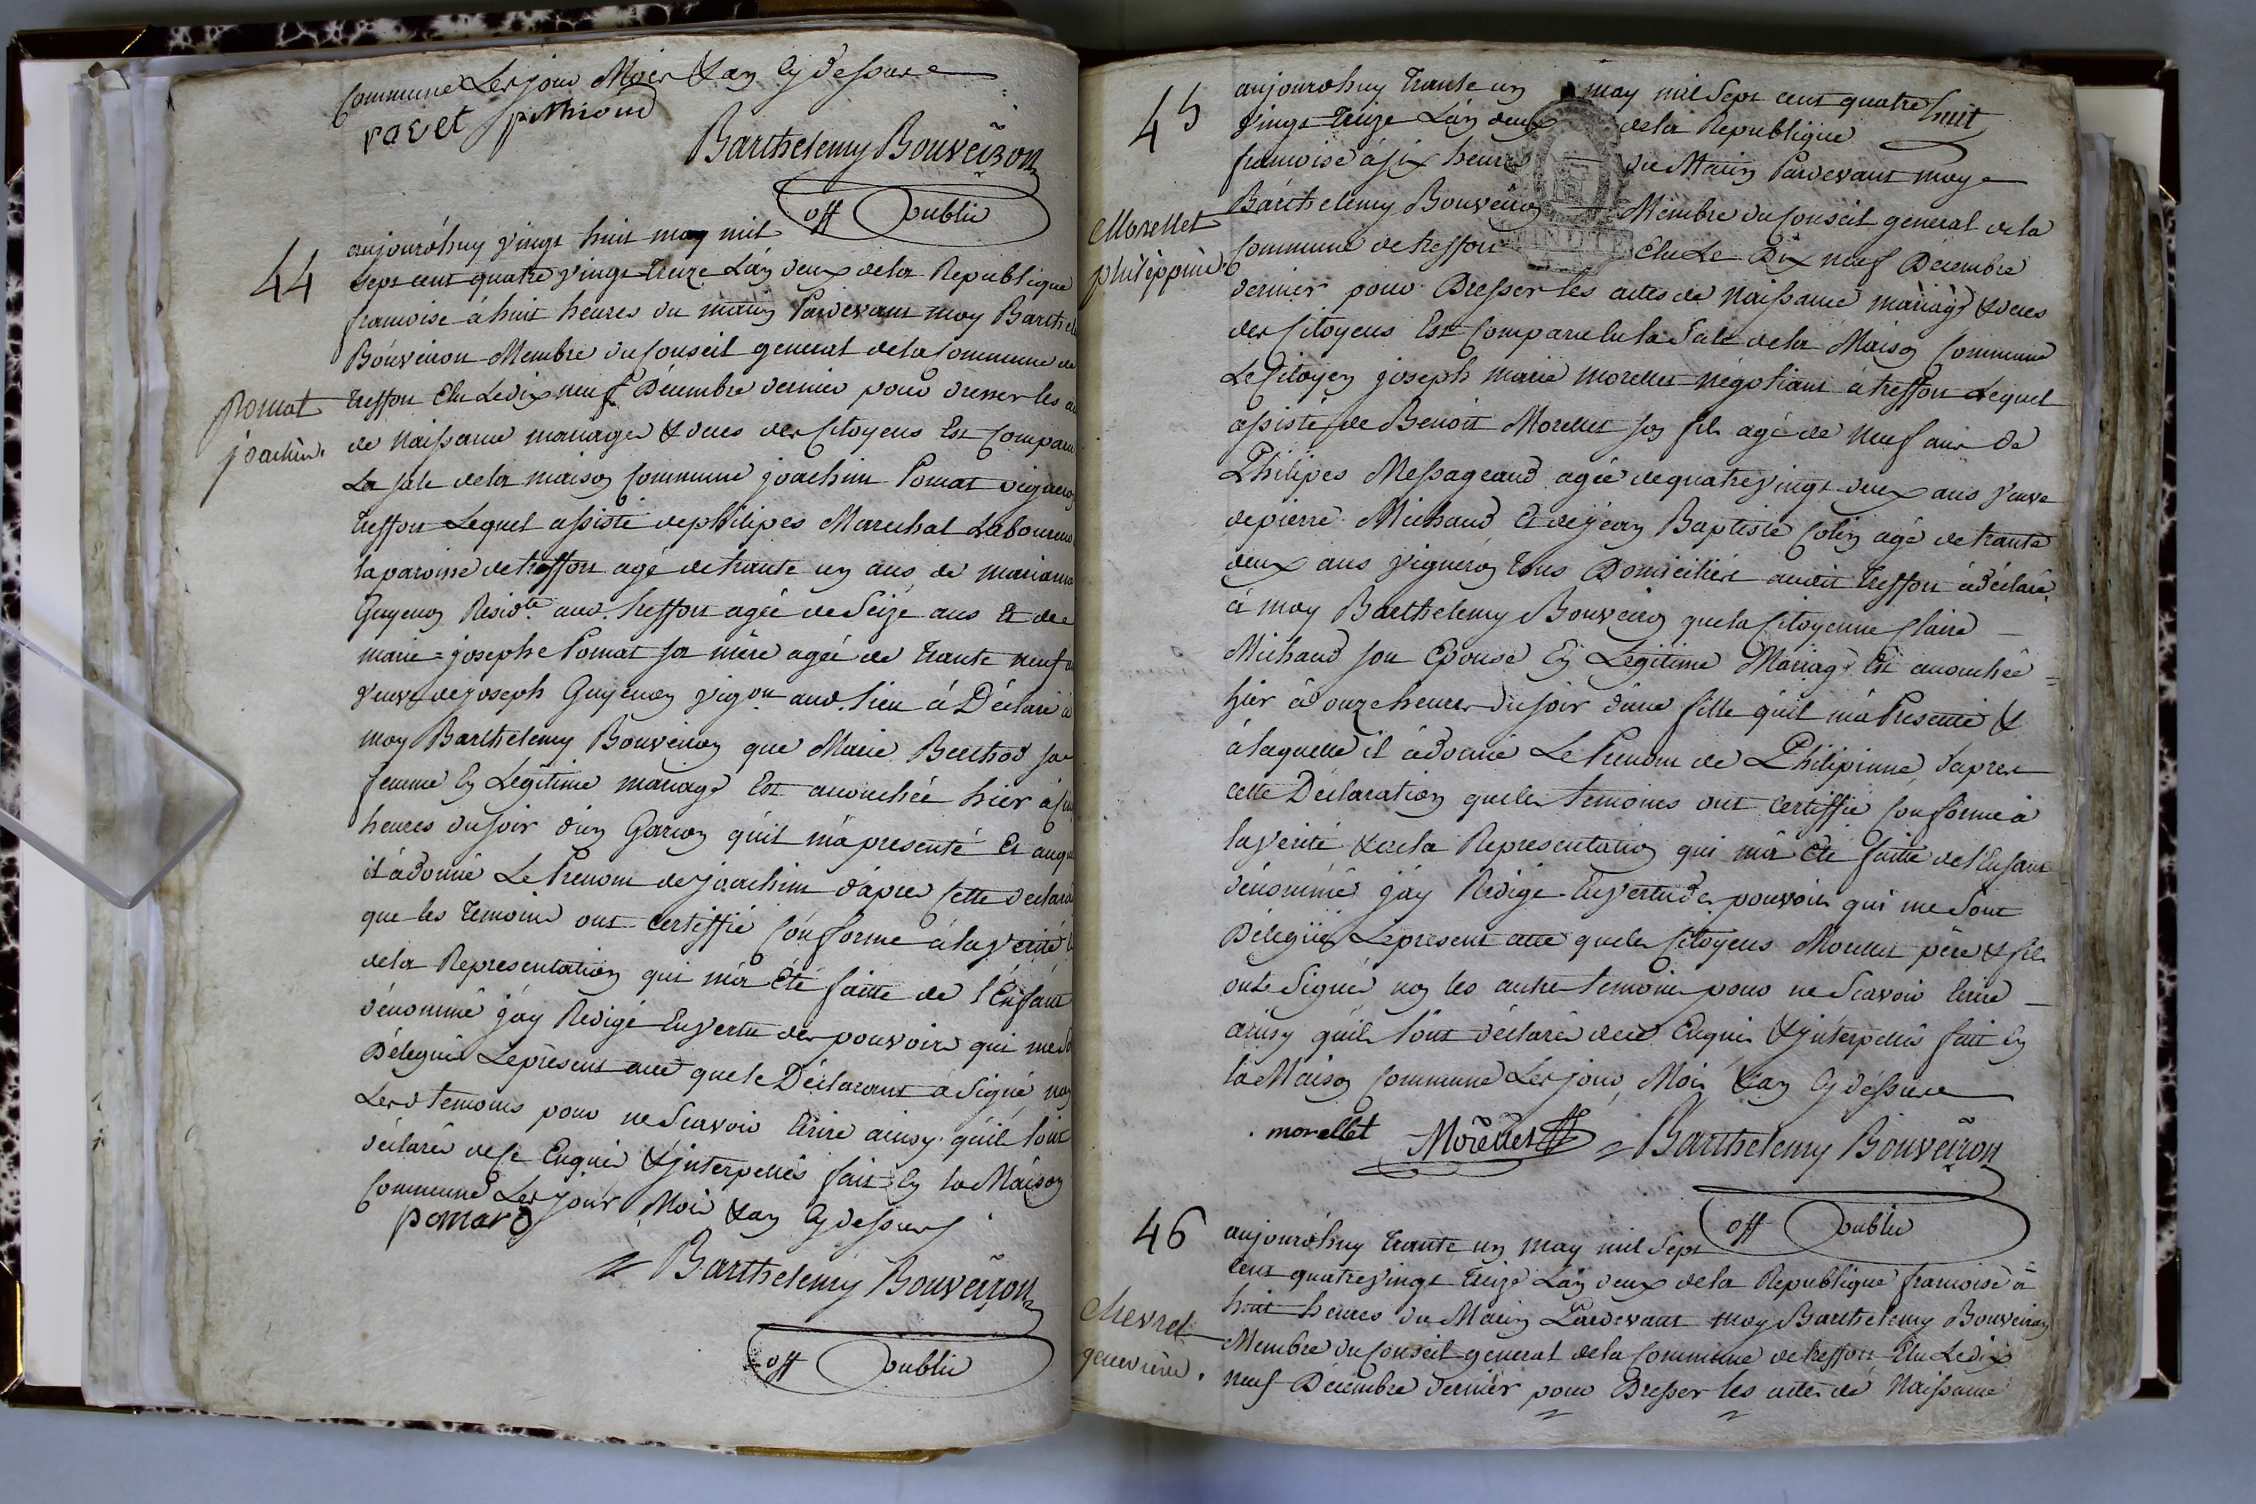 Commune Les jour Mois & an Cy dessus
ravet pMiroud
Barthelemy Bouveiron
off public
44
aujourdhuy vingt huit may mil
Sept cent quatre vingt treize L'an deux de la Republique
francoise à huit heures du matin Pardevant moy Barthel
Bouveiron Membre du Conseil general de la Commune de
treffort Elu Le dix neuf Décembre dernier pour dresser les ac
Pomat
joachin.
de Naissance mariages & deces des Citoyens Est Comparu
La sale de la maison Commune joachim Pomat vigneron
treffort Lequel assisté de philipes Marechal Laboureur
la paroisse de treffort agé de trante un ans, de marianne
Guyenon Resid.te aud. treffort agée de Seize ans Et de
marie=josephe Pomat sa mère agée de trante neuf a
veuve de joseph Guyenon vigon aud. lieu à Déclaré à
moy Barthelemy Bouveiron que Marie Berthod sa
femme En Légitime mariage Est accouchée hier à
heures du soir d'un Garçon qu'il m'a presenté Et auqu
il à donné Le Prenom de joachim d'après Cette declara
que les temoins ont certiffié Conforme à la verité &
de la Representation qui m'a été faitte de l'Enfant
dénommé j'ay Redigé En vertu des pouvoirs qui me s
Délégués Le présent acte que le Déclarant à Signé non
Les d temoins pour ne Scavoir Ecrire ainsy qu'il l'ont
déclaré de ce Enquis & jnterpellés fait En la Maison
Commune Les jour Mois & an Cy dessus
pomard
Barthelemy Bouveiron
off public
45
aujourdhuy trante un may mil Sept cent quatre
vingt treize L'an deux de la Republique huit
francoise à six heures du Matin Pardevant moy
Barthelemy Bouveiron Membre du Conseil general de la
Morellet
philippine
Commune de treffort Elu Le Dix neuf Décembre
dernier pour Dresser les actes de Naissance mariage & deces
des Citoyens Est Comparu En la Sale de la Maison Commune
Le Citoyen joseph marie morellet négotiant à treffort Lequel
assisté de Benoit Morellet son fils agé de neuf ans de
Philipes Messageaud agée de quatre vingt deux ans veuve
de pierre Michaud Et de jean Baptiste Colin agé de trante
deux ans vigneron tous Domiciliés audit treffort à déclaré
à moy Barthelemy Bouveiron que la Citoyenne Claire
Michaud son Epouse En Legitime Mariage Est accouchée
hier à onze heures du soir d'une fille qu'il m'a Presenté &
à laquelle il à donné Le Prenom de Philipinne d'apres
cette Déclaration que les temoins ont certiffié Conforme à
la verité & de la Representation qui m'a été faitte de l'Enfant
dénommé j'ay Redigé En vertu des pouvoirs qui me Sont
Délégués Le present acte que les Citoyens Morellet père & fils
ont Signé non les autre temoins pour ne Scavoir Ecrire
ainsy qu'ils l'ont déclaré de ce Enquis & jnterpellés fait En
la Maison Commune Les jour, Mois & an Cy dessus
morellet Morellet Barthelemy Bouveiron
off public
46
aujourdhuy trante un may mil Sept
Cent quatre vingt treize L'an deux de la Republique francoise à
huit heures du Matin Pardevant moy Barthelemy Bouveiron
Chevrel
genevieve.
Membre du Conseil general de la Commune de treffort Elu Le dix
neuf Décembre dernier pour Dresser les actes de Naissance